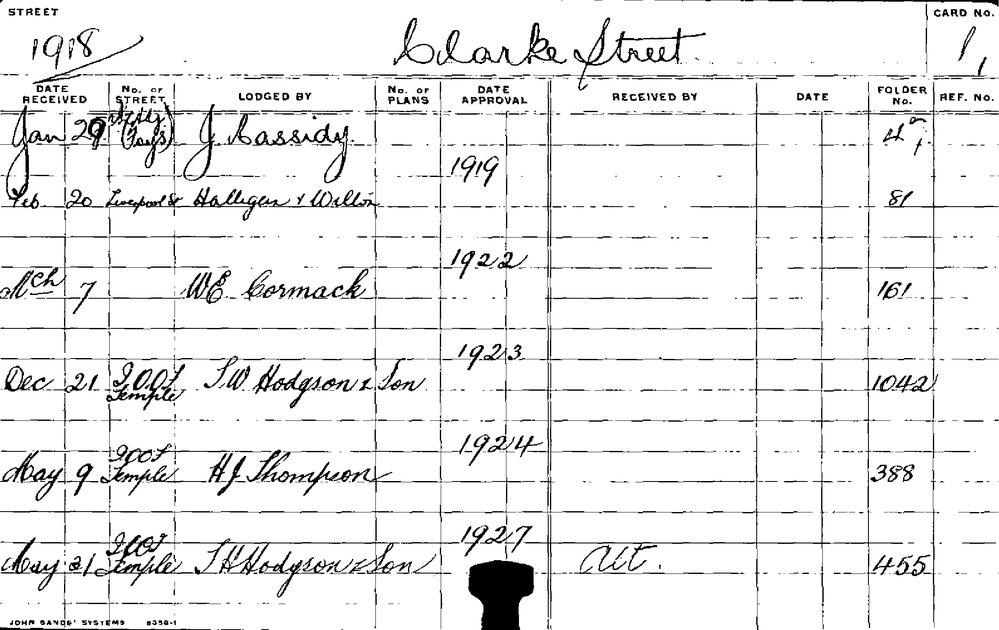 STREET
CARD NO.
1918 Clarke Street 1,
DATE RECEIVED No. OF STREET LODGED BY No. OF PLANS DATE APPROVAL RECEIVED BY DATE FOLDER No. REF. No.
Jan 29 J Cassidy
1919
Feb. 20 Liverpool St Halligan & Wilton 81
1922
Mch 7 WE Cormack 161
1923
Dec 21 I.O.O.F Temple T W Hodgson & Son 1042
1924
May 9 IOOF Temple H J Thompson 388
1927
May 31 IOOF Temple T H Hodgson & Son Alt. 455
JOHN SANDS' SYSTEMS